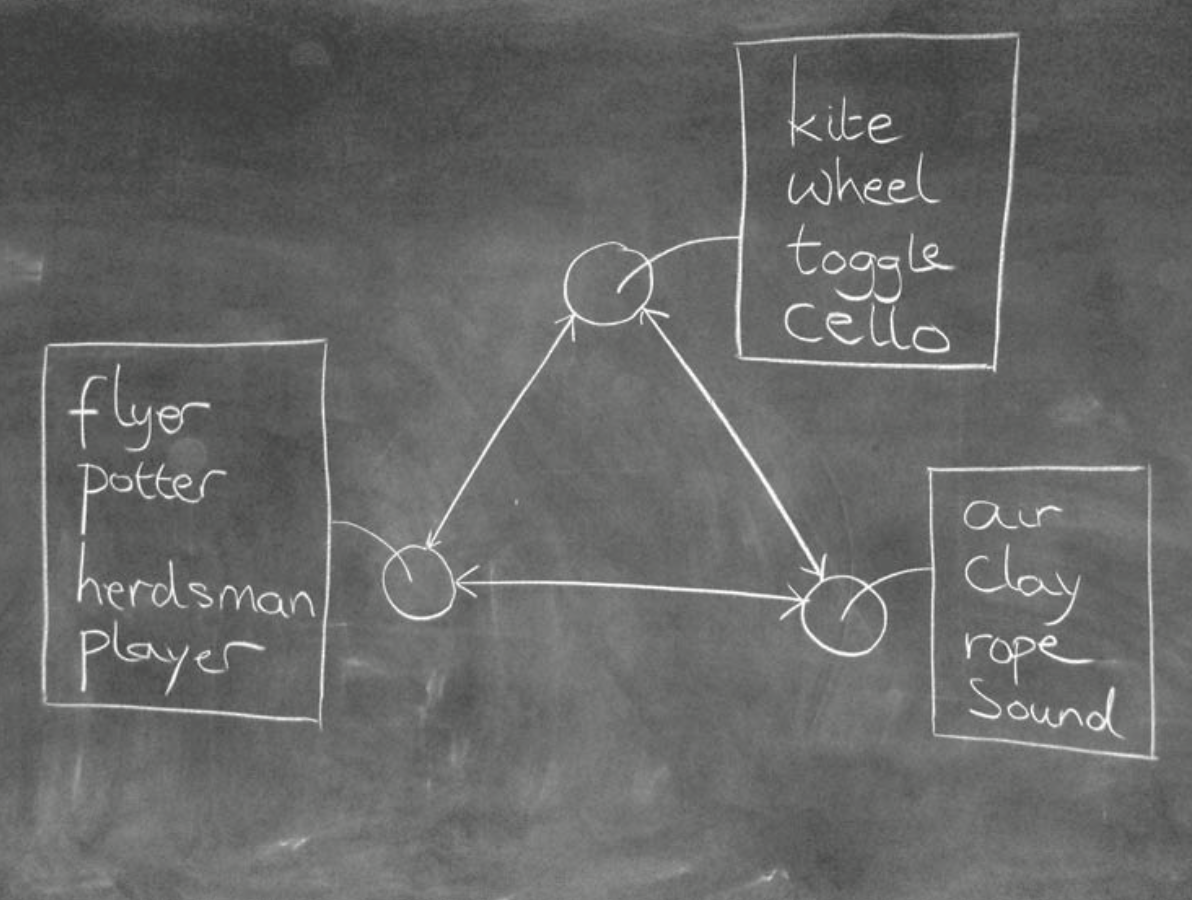 kite
wheel
toggle
cello
flyer
potter
herdsman
player
air
clay
rope
Sound